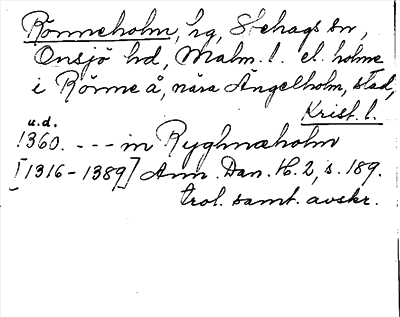 Rönneholm, hg, Stehags sn,
Onsjö hd, Malm. l. el. holme
i Rönne å, nära Ängelholm, stad,
Krist. l.
u.d.
1360. --- in Ryghnæholm
[1316-1389] Ann. Dan. H. 2, s. 189.
trol. samt. avskr.